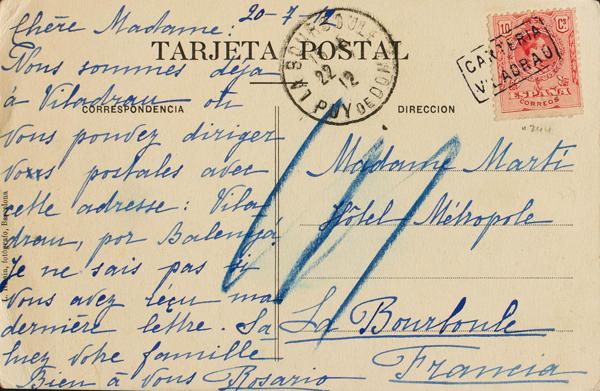 20-7-12
Chère Madame:
TARJETA POSTAL
Nous sommes déja
à Viladrau où
CORRESPONDENCIA
vous pouvez diriger
vos postales avec
cette adresse: Vila-
drau, por Balenyá.
Je ne sais pas si
vous avez réçu ma
dernière lettre. Sa
luez votre famille
Bien à vous Rosario
fotógrafo, Barcelona
LA BOURBOULE
22
12
PUY DE DOME
10 Cs
ESPAÑA
CORREOS
CARTERIA
VILADRAU
DIRECCION
Madame Martí
Hôtel Métropole
La Bourboule
Francia